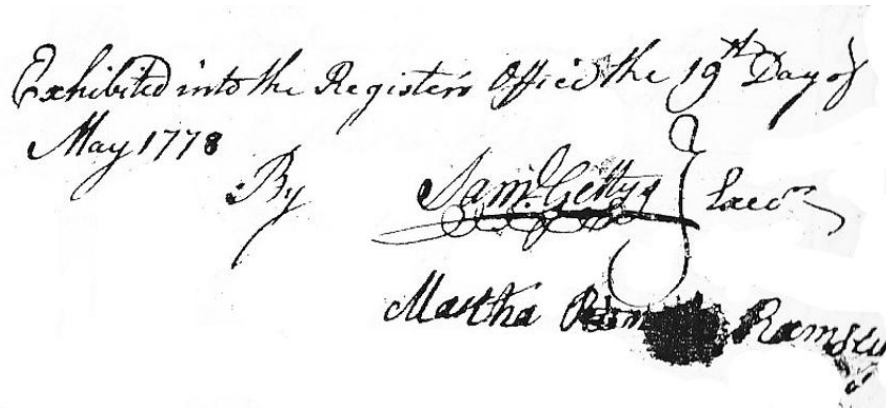 Exhibited into the Registers Office the 19th Day of
May 1778
By Saml. Gettys
Martha Ramsey